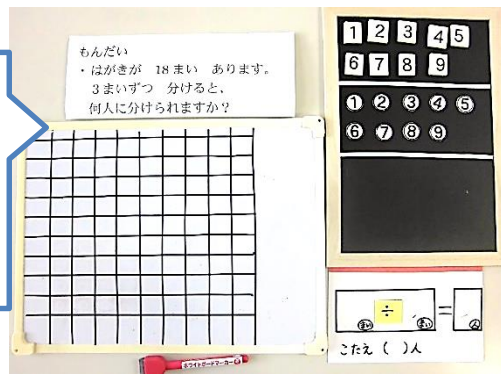 もんだい
・はがきが　18まい　あります。
3まいずつ　分けると、
何人に分けられますか？
1 2 3 4 5
6 7 8 9
① ② ③ ④ ⑤
⑥ ⑦ ⑧ ⑨
まい ÷ まい = 人
こたえ（　）人
ホワイトボードマーカー